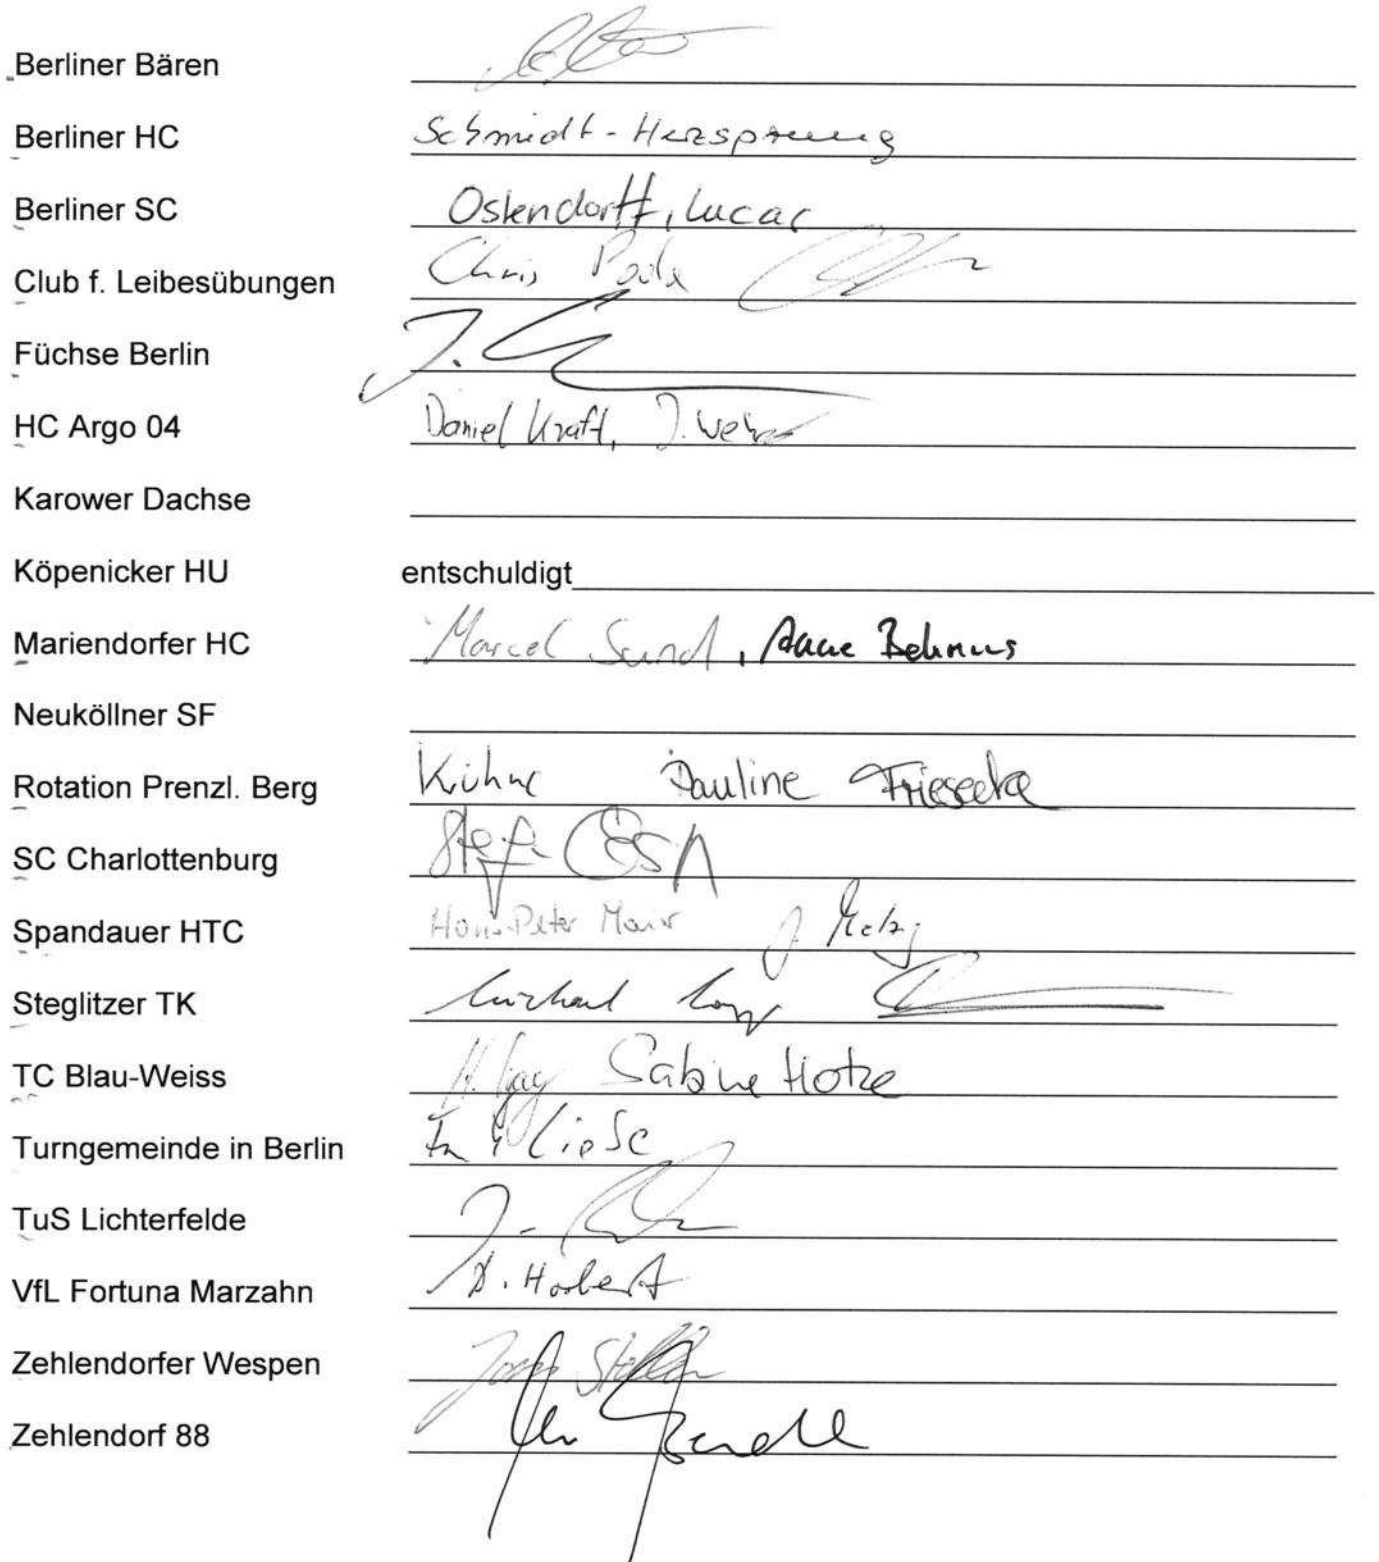 Berliner Bären
Berliner HC Schmidt-Herzsprung
Berliner SC Ostendorff, Lucas
Club f. Leibesübungen Chris
Füchse Berlin J.
HC Argo 04 Daniel Kraft, J. Weber
Karower Dachse
Köpenicker HU entschuldigt
Mariendorfer HC Marcel Sund, Anne Behrens
Neuköllner SF
Rotation Prenzl. Berg Kühne Pauline Friesecke
SC Charlottenburg
Spandauer HTC Hans-Peter Maier J.
Steglitzer TK Michael
TC Blau-Weiss Sabine Hotze
Turngemeinde in Berlin Liese
TuS Lichterfelde
VfL Fortuna Marzahn D. Horbert
Zehlendorfer Wespen
Zehlendorf 88